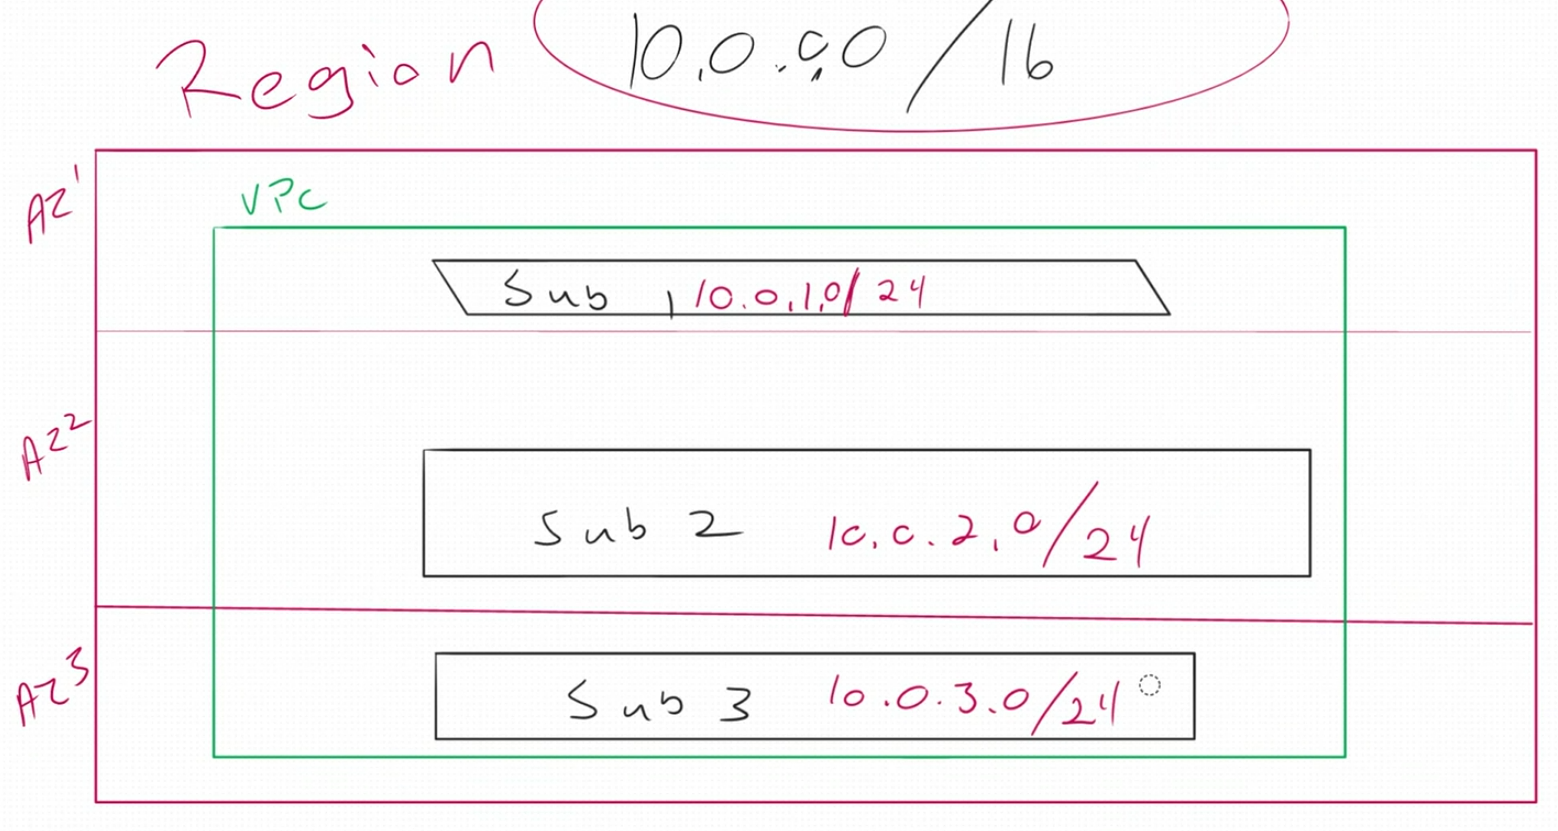 Region 10.0.0.0/16
AZ1
VPC
Sub 1 10.0.1.0/24
AZ2
Sub 2 10.0.2.0/24
AZ3
Sub 3 10.0.3.0/24